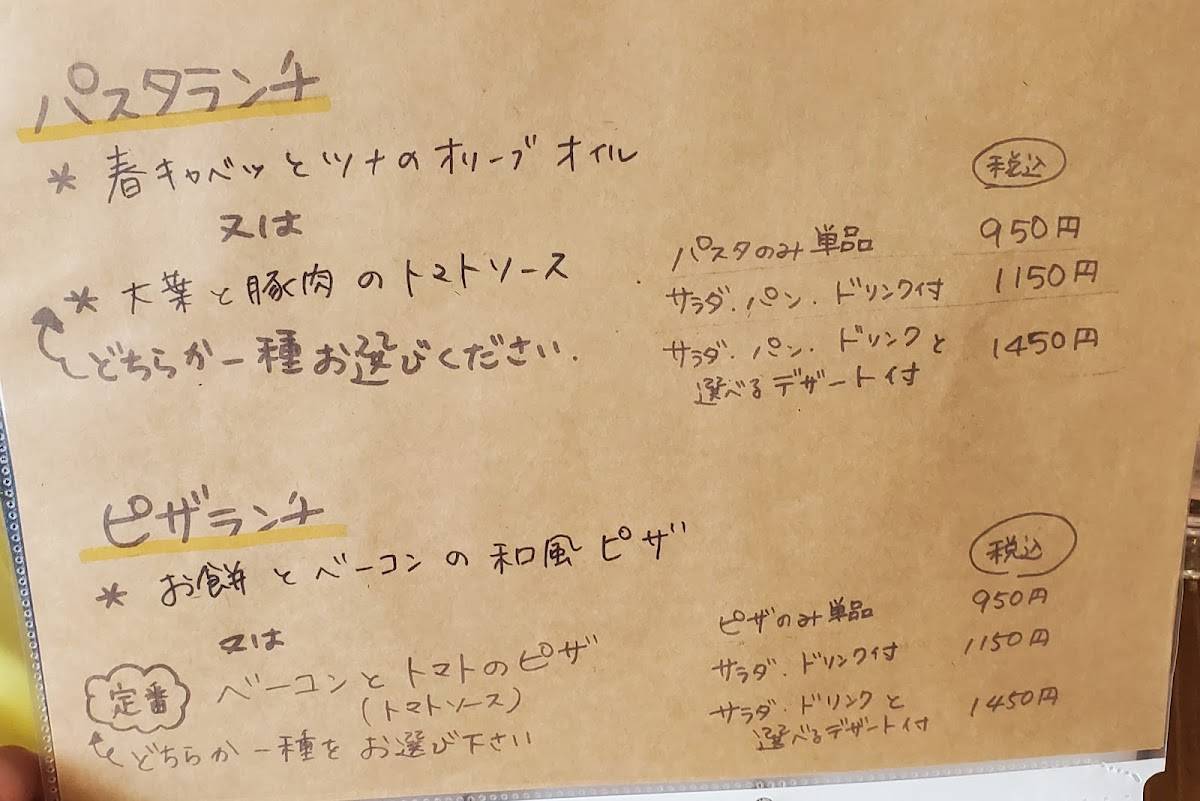 パスタランチ
* 春キャベツとツナのオリーブオイル
又は
* 大葉と豚肉のトマトソース
どちらか一種お選びください.
税込
パスタのみ単品 950円
サラダ.パン.ドリンク付 1150円
サラダ.パン.ドリンクと 1450円
選べるデザート付
ピザランチ
* お餅とベーコンの和風ピザ
又は
定番 ベーコンとトマトのピザ
(トマトソース)
どちらか一種をお選び下さい
税込
ピザのみ単品 950円
サラダ.ドリンク付 1150円
サラダ.ドリンクと 1450円
選べるデザート付